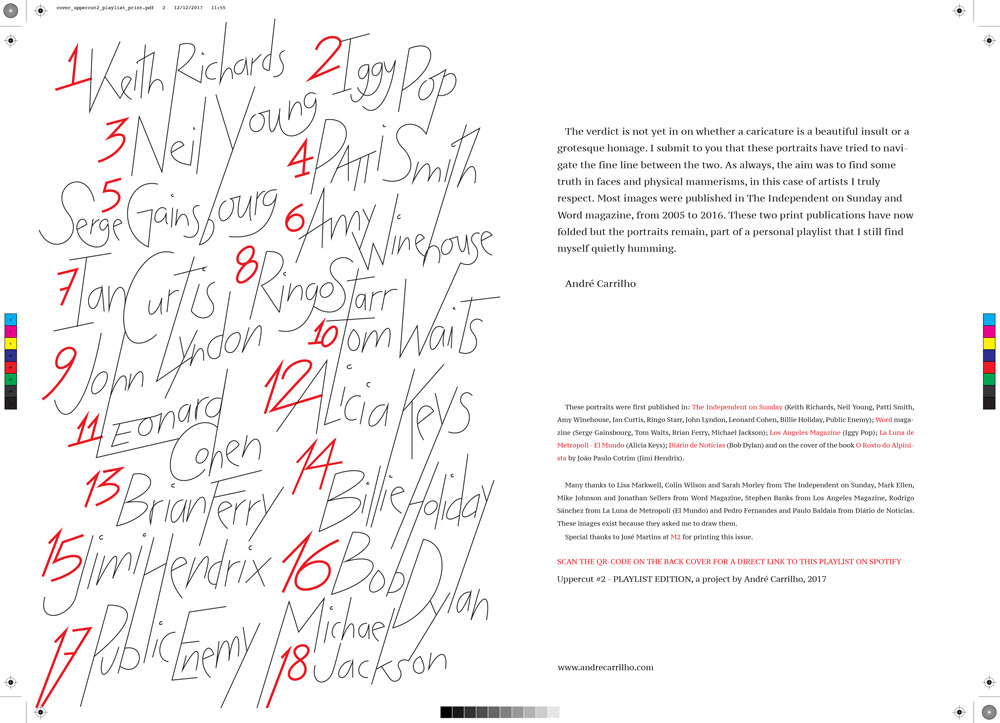 cover_uppercut2_playlist_print.pdf 2 12/12/2017 11:55
1 Keith Richards
2 Iggy Pop
3 Neil Young
4 Patti Smith
5 Serge Gainsbourg
6 Amy
Winehouse
7 Ian Curtis
8 Ringo Starr
9 John Lyndon
10 Tom Waits
11 Leonard
Cohen
12 Alicia Keys
13 Brian Ferry
14 Billie Holiday
15 Jimi Hendrix
16 Bob Dylan
17 Public Enemy
18 Michael
Jackson
The verdict is not yet in on whether a caricature is a beautiful insult or a
grotesque homage. I submit to you that these portraits have tried to navi-
gate the fine line between the two. As always, the aim was to find some
truth in faces and physical mannerisms, in this case of artists I truly
respect. Most images were published in The Independent on Sunday and
Word magazine, from 2005 to 2016. These two print publications have now
folded but the portraits remain, part of a personal playlist that I still find
myself quietly humming.
André Carrilho
These portraits were first published in: The Independent on Sunday (Keith Richards, Neil Young, Patti Smith,
Amy Winehouse, Ian Curtis, Ringo Starr, John Lyndon, Leonard Cohen, Billie Holiday, Public Enemy); Word maga-
zine (Serge Gainsbourg, Tom Waits, Brian Ferry, Michael Jackson); Los Angeles Magazine (Iggy Pop); La Luna de
Metropoli - El Mundo (Alicia Keys); Diário de Notícias (Bob Dylan) and on the cover of the book O Rosto do Alpini-
sta by João Paulo Cotrim (Jimi Hendrix).
Many thanks to Lisa Markwell, Colin Wilson and Sarah Morley from The Independent on Sunday, Mark Ellen,
Mike Johnson and Jonathan Sellers from Word Magazine, Stephen Banks from Los Angeles Magazine, Rodrigo
Sánchez from La Luna de Metropoli (El Mundo) and Pedro Fernandes and Paulo Baldaia from Diário de Notícias.
These images exist because they asked me to draw them.
Special thanks to José Martins at M2 for printing this issue.
SCAN THE QR-CODE ON THE BACK COVER FOR A DIRECT LINK TO THIS PLAYLIST ON SPOTIFY
Uppercut #2 - PLAYLIST EDITION, a project by André Carrilho, 2017
www.andrecarrilho.com